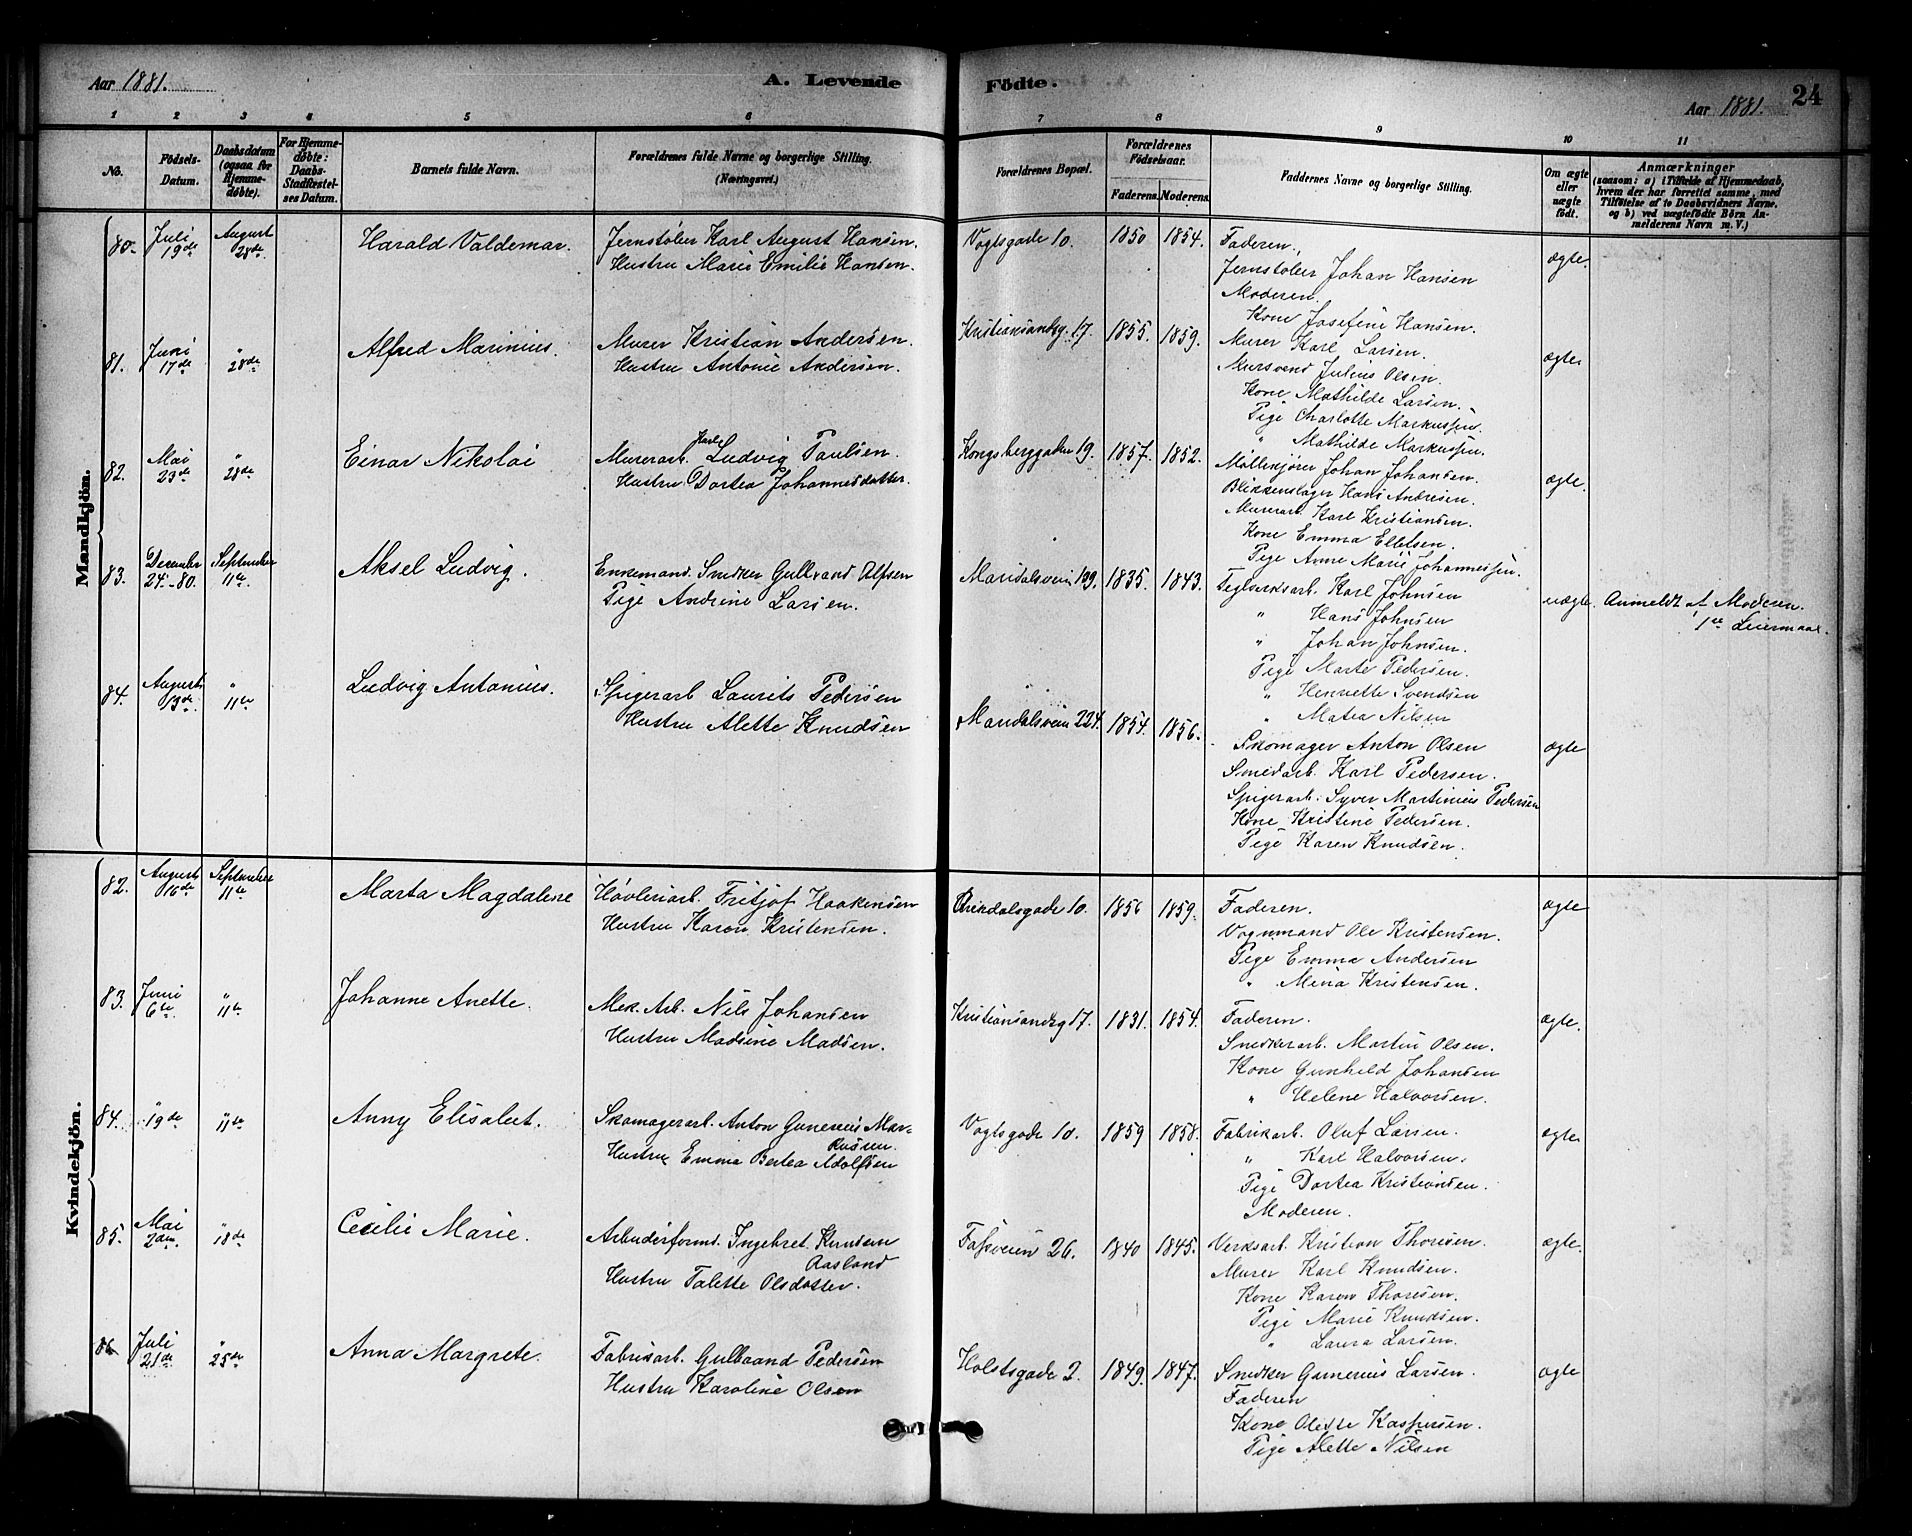 Aar 1881.
A. Levende
Födte.
Aar 1881.
24
1 2 3 4 5 6 7 8 9 10 11
No.
Födsels-
Datum.
Daabsdatum
(ogsaa for
Hjemme-
döbte).
For Hjemme-
döbte:
Daabs-
Stadfæstel-
ses Datum.
Barnets fulde Navn.
Forældrenes fulde Navne og borgerlige Stilling.
(Næringsvei.)
Forældrenes Bopæl.
Forældrenes
Födselsaar.
Faderens. Moderens.
Faddernes Navne og borgerlige Stilling.
Om ægte
eller
uægte
födt.
Anmærkninger
(saasom: a) i Tilfælde af Hjemmedaab,
hvem der har forrettet samme, med
Tilföielse af to Daabsvidners Navne.
og b) ved uægtefödte Börn An-
melderens Navn m. V.)
Mandkjön.
80. Juli 19de August 28de Harald Valdemar.
Jernstøber Karl August Hansen.
Hustru Marie Emilie Hansen.
Vogtsgade 10. 1850 1854.
Faderen.
Jernstøber Johan Hansen
Moderen.
Kone Josefine Hansen.
ægte.
81. Juni 17de " 28de Alfred Marinius.
Murer Kristian Andersen.
Hustru Antonie Andersen.
Kristiansandsg. 17. 1855. 1859.
Murer Karl Larsen.
Mursvend Julius Olsen.
Kone Mathilde Larsen.
Pige Charlotte Markussen.
" Mathilde Markussen.
ægte
82. Mai 23de " 28de Einar Nikolai
Murerarb. Karl Ludvig Paulsen.
Hustru Dortea Johannesdatter.
Kongsberggaden 19. 1857. 1852.
Møllekjører Johan Johansen.
Blikkenslager Hans Andresen.
Murerarb. Karl Kristiansen.
Kone Emma Ellefsen.
Pige Anne Marie Johannessen.
ægte.
83. December 24.-80. September 11te Aksel Ludvig.
Enkemand. Snedker Gulbrand Alfsen
Pige Andrine Larsen.
Maridalsveien 199. 1835. 1843.
Teglverksarb. Karl Johnsen
" Hans Johnsen
" Johan Johnsen.
Pige Marte Pedersen.
" Henriette Svendsen
" Matea Nilsen
uægte. Anmeldt af Moderen.
1ste Leiermaal.
84. August 13de " 11te Ludvig Antonius.
Spigerarb Laurits Pedersen
Hustru Alette Knudsen
Maridalsveien 224. 1854. 1856.
Skomager Anton Olsen
Smedarb. Karl Pedersen.
Spigerarb. Syver Martinius Pedersen
Kone Kristine Pedersen.
Pige Karen Knudsen.
ægte
Kvindekjön.
82. August 16de September 11te Marta Magdalene
Høvleriarb. Fritjof Haakensen
Hustru Karen Kristensen.
Arendalsgade 10. 1856 1859.
Faderen.
Vognmand Ole Kristensen.
Pige Emma Andersen
" Mina Kristensen.
ægte
83. Juni 6te " 11te Johanne Anette.
Mek. Arb. Nils Johansen
Hustru Madsine Madsen.
Kristiansandsg 17. 1831. 1854.
Faderen.
Snedkerarb. Martin Olsen.
Kone Gunhild Johansen
" Helene Halvorsen.
ægte.
84. " 19de " 11te Anny Elisabet.
Skomagerarb. Anton Gunerius Mar-
kusen.
Hustru Emma Bertea Adolfsen
Vogtsgade 10. 1859 1858.
Fabrikarb. Oluf Larsen.
" Karl Halvorsen.
Pige Dortea Kristiansen.
Moderen.
ægte
85. Mai 2den " 18de Cecilie Marie.
Arbeiderformd. Ingebret Knudsen
Aasland
Hustru Talette Olsdatter.
Fossveien 26. 1840 1845.
Verksarb. Kristian Thoresen.
Murer Karl Knudsen.
Kone Karen Thoresen.
Pige Marie Knudsen.
" Laura Larsen.
ægte.
86 Juli 21de " 25de Anna Margrete.
Fabrikarb. Gulbrand Pedersen
Hustru Karoline Olsen
Holstsgade 2. 1849. 1847.
Snedker Gunerius Larsen.
Faderen
Kone Olette Kaspersen.
Pige Alette Nilsen
ægte